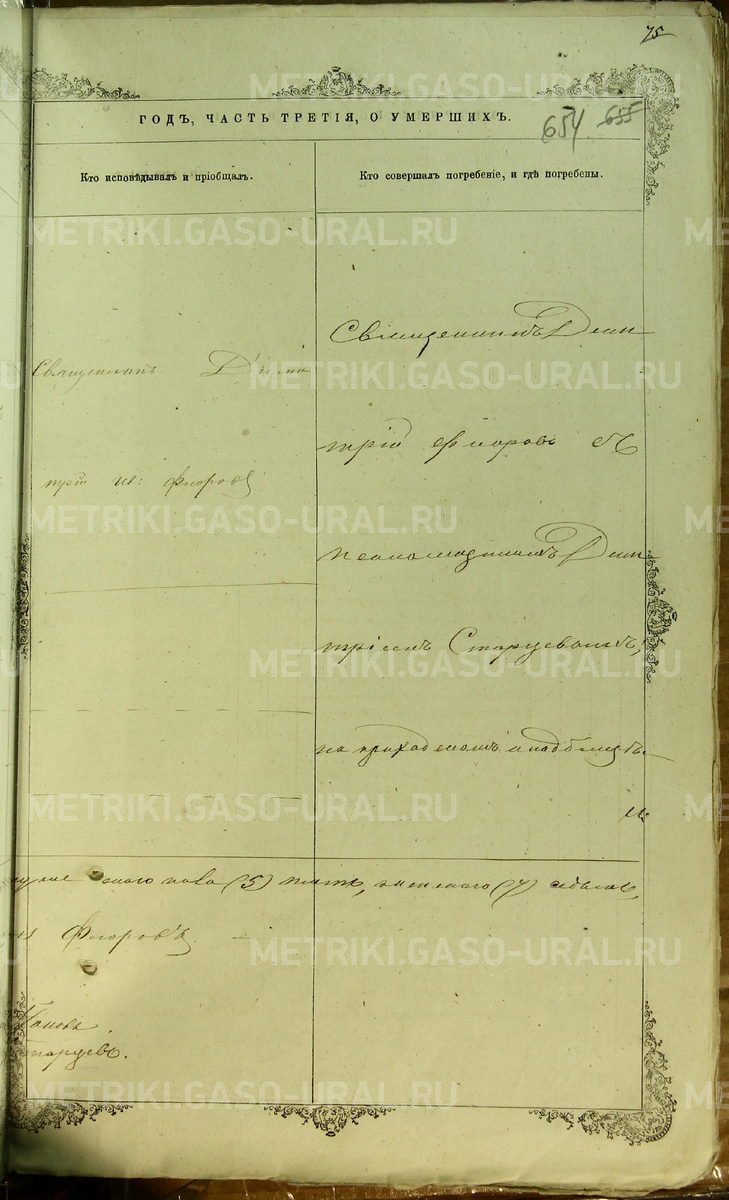 75
ГОДЪ, ЧАСТЬ ТРЕТІЯ, О УМЕРШИХЪ.
654 655
Кто исповѣдывалъ и пріобщалъ.
Кто совершалъ погребеніе, и гдѣ погребены.
Священникъ Дими
трій Ив: Флоровъ
Священникъ Дими
трій Флоровъ съ
псаломщикомъ Дими
тріемъ Старцевымъ,
на приходскомъ кладбищѣ
мужескаго пола (5) пять, женскаго (7) седмь,
Флоровъ.
Поповъ.
Старцевъ.
METRIKI.GASO-URAL.RU